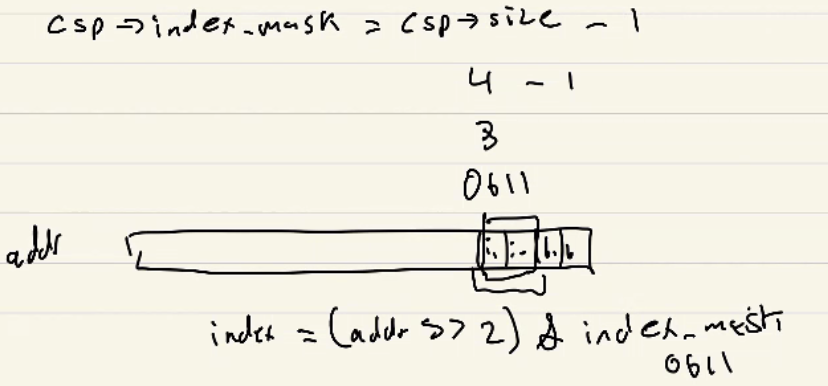 csp→index_mask = csp→size - 1
4 - 1
3
0b11
addr
i, i- b, b
index = (addr >> 2) & index_mask
0b11